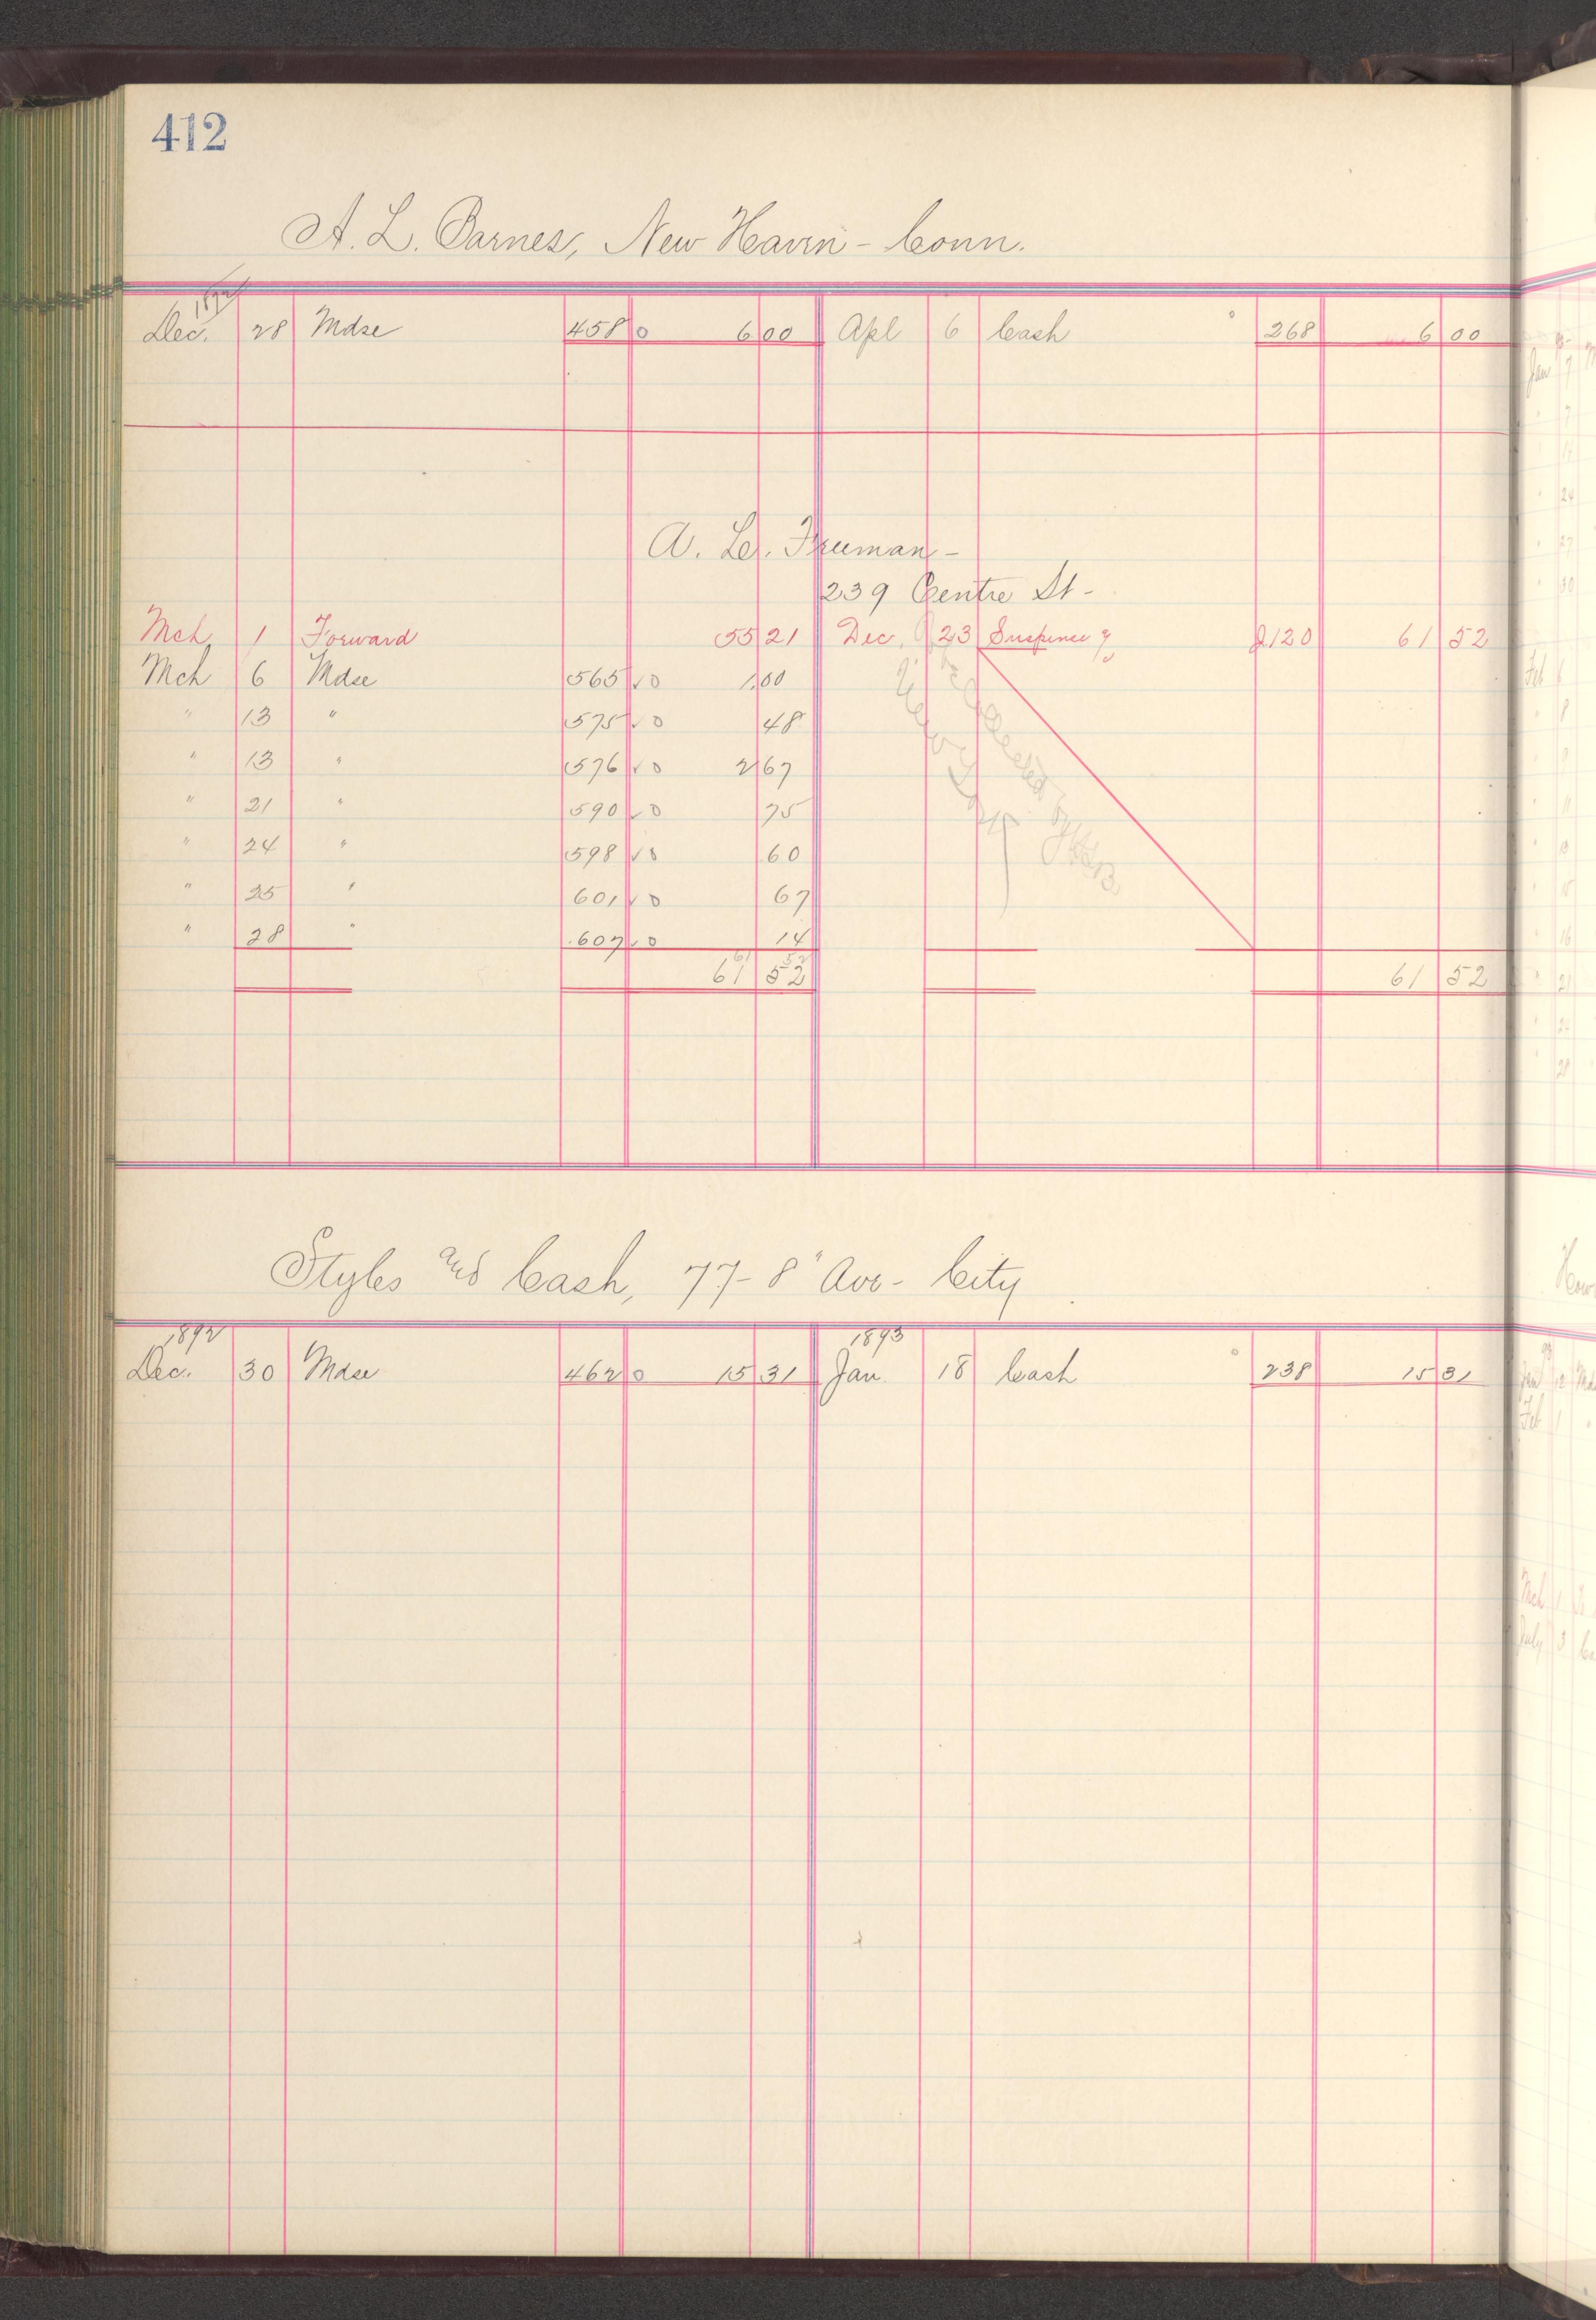 412
A. L. Barnes, New Haven - Conn.
1892
Dec. 28 Mdse 458 0 6 00 Apl 6 Cash 268 6 00
A. Le. Truman -
239 Centre St -
Mch 1 Forward 55 21 Dec. 23 Suspense J120 61 52
Mch 6 Mdse 565 √ 0 1.00
" 13 " 575 √ 0 48
" 13 " 576 √ 0 2 67
" 21 " 590 √ 0 75
" 24 " 598 √ 0 60
" 25 " 601 √ 0 67
" 28 " 607 √ 0 14
61 52 61 52
Styles and Cash, 77 - 8" Ave - City
1892 1893
Dec. 30 Mdse 462 0 15 31 Jan. 18 Cash 238 15 31